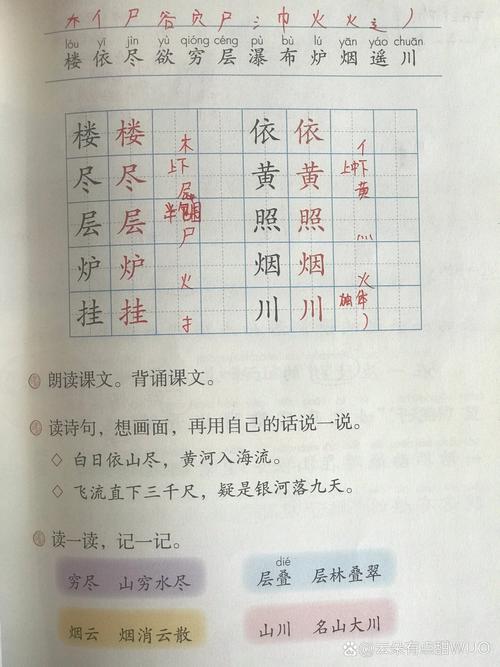 木 亻 尸 谷 穴 尸 氵 巾 火 火 辶 丿
lóu yī jìn yù qióng céng pù bù lú yān yáo chuān
楼 依 尽 欲 穷 层 瀑 布 炉 烟 遥 川
楼 楼 木 依 依 亻
尽 尽 上下 尸 黄 黄 上中下 黄
层 层 半包围 尸 照 照 灬
炉 炉 火 烟 烟 火
挂 挂 扌 川 川 独体 丿
朗读课文。背诵课文。
读诗句，想画面，再用自己的话说一说。
◇ 白日依山尽，黄河入海流。
◇ 飞流直下三千尺，疑是银河落九天。
读一读，记一记。
dié
穷尽 山穷水尽 层叠 层林叠翠
烟云 烟消云散 山川 名山大川
@云朵有点甜WUO